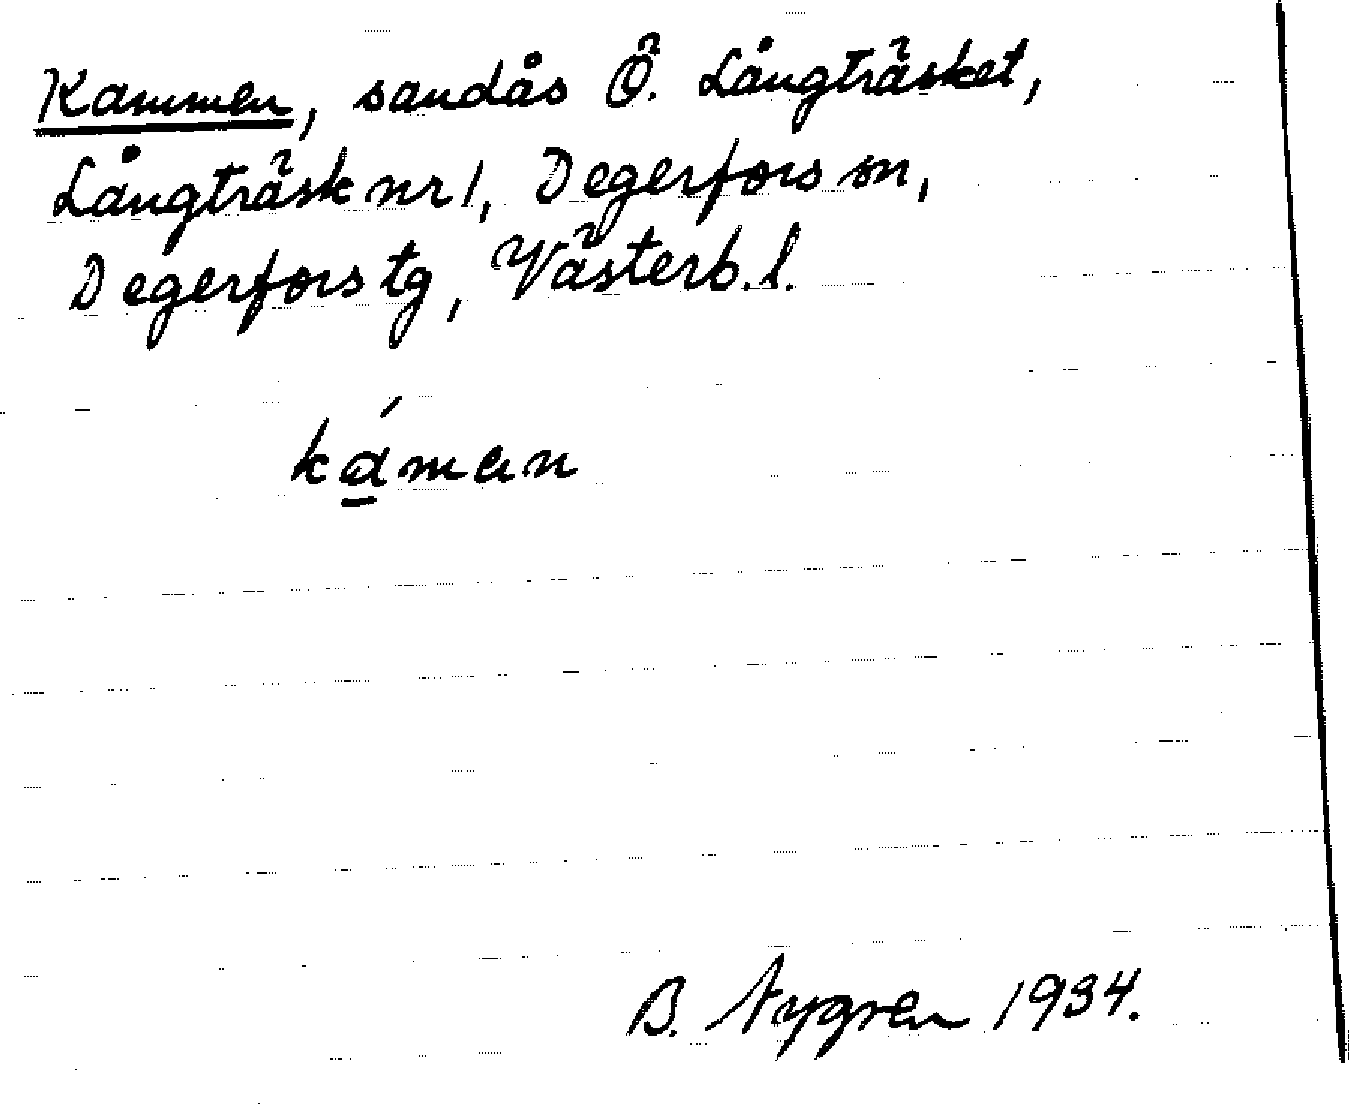 Kammen, sandås Ö. Långträsket,
Långträsk nr 1, Degerfors sn,
Degerfors tg, Västerb. l.
káman
B. Nygren 1934.